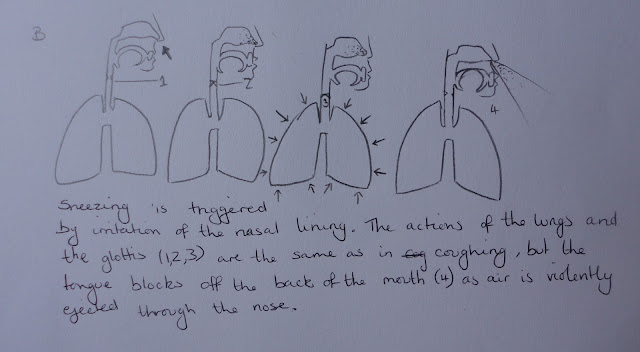 B
1
2
3
4
Sneezing is triggered
by irritation of the nasal lining. The actions of the lungs and
the glottis (1,2,3) are the same as in coughing, but the
tongue blocks off the back of the mouth (4) as air is violently
ejected through the nose.